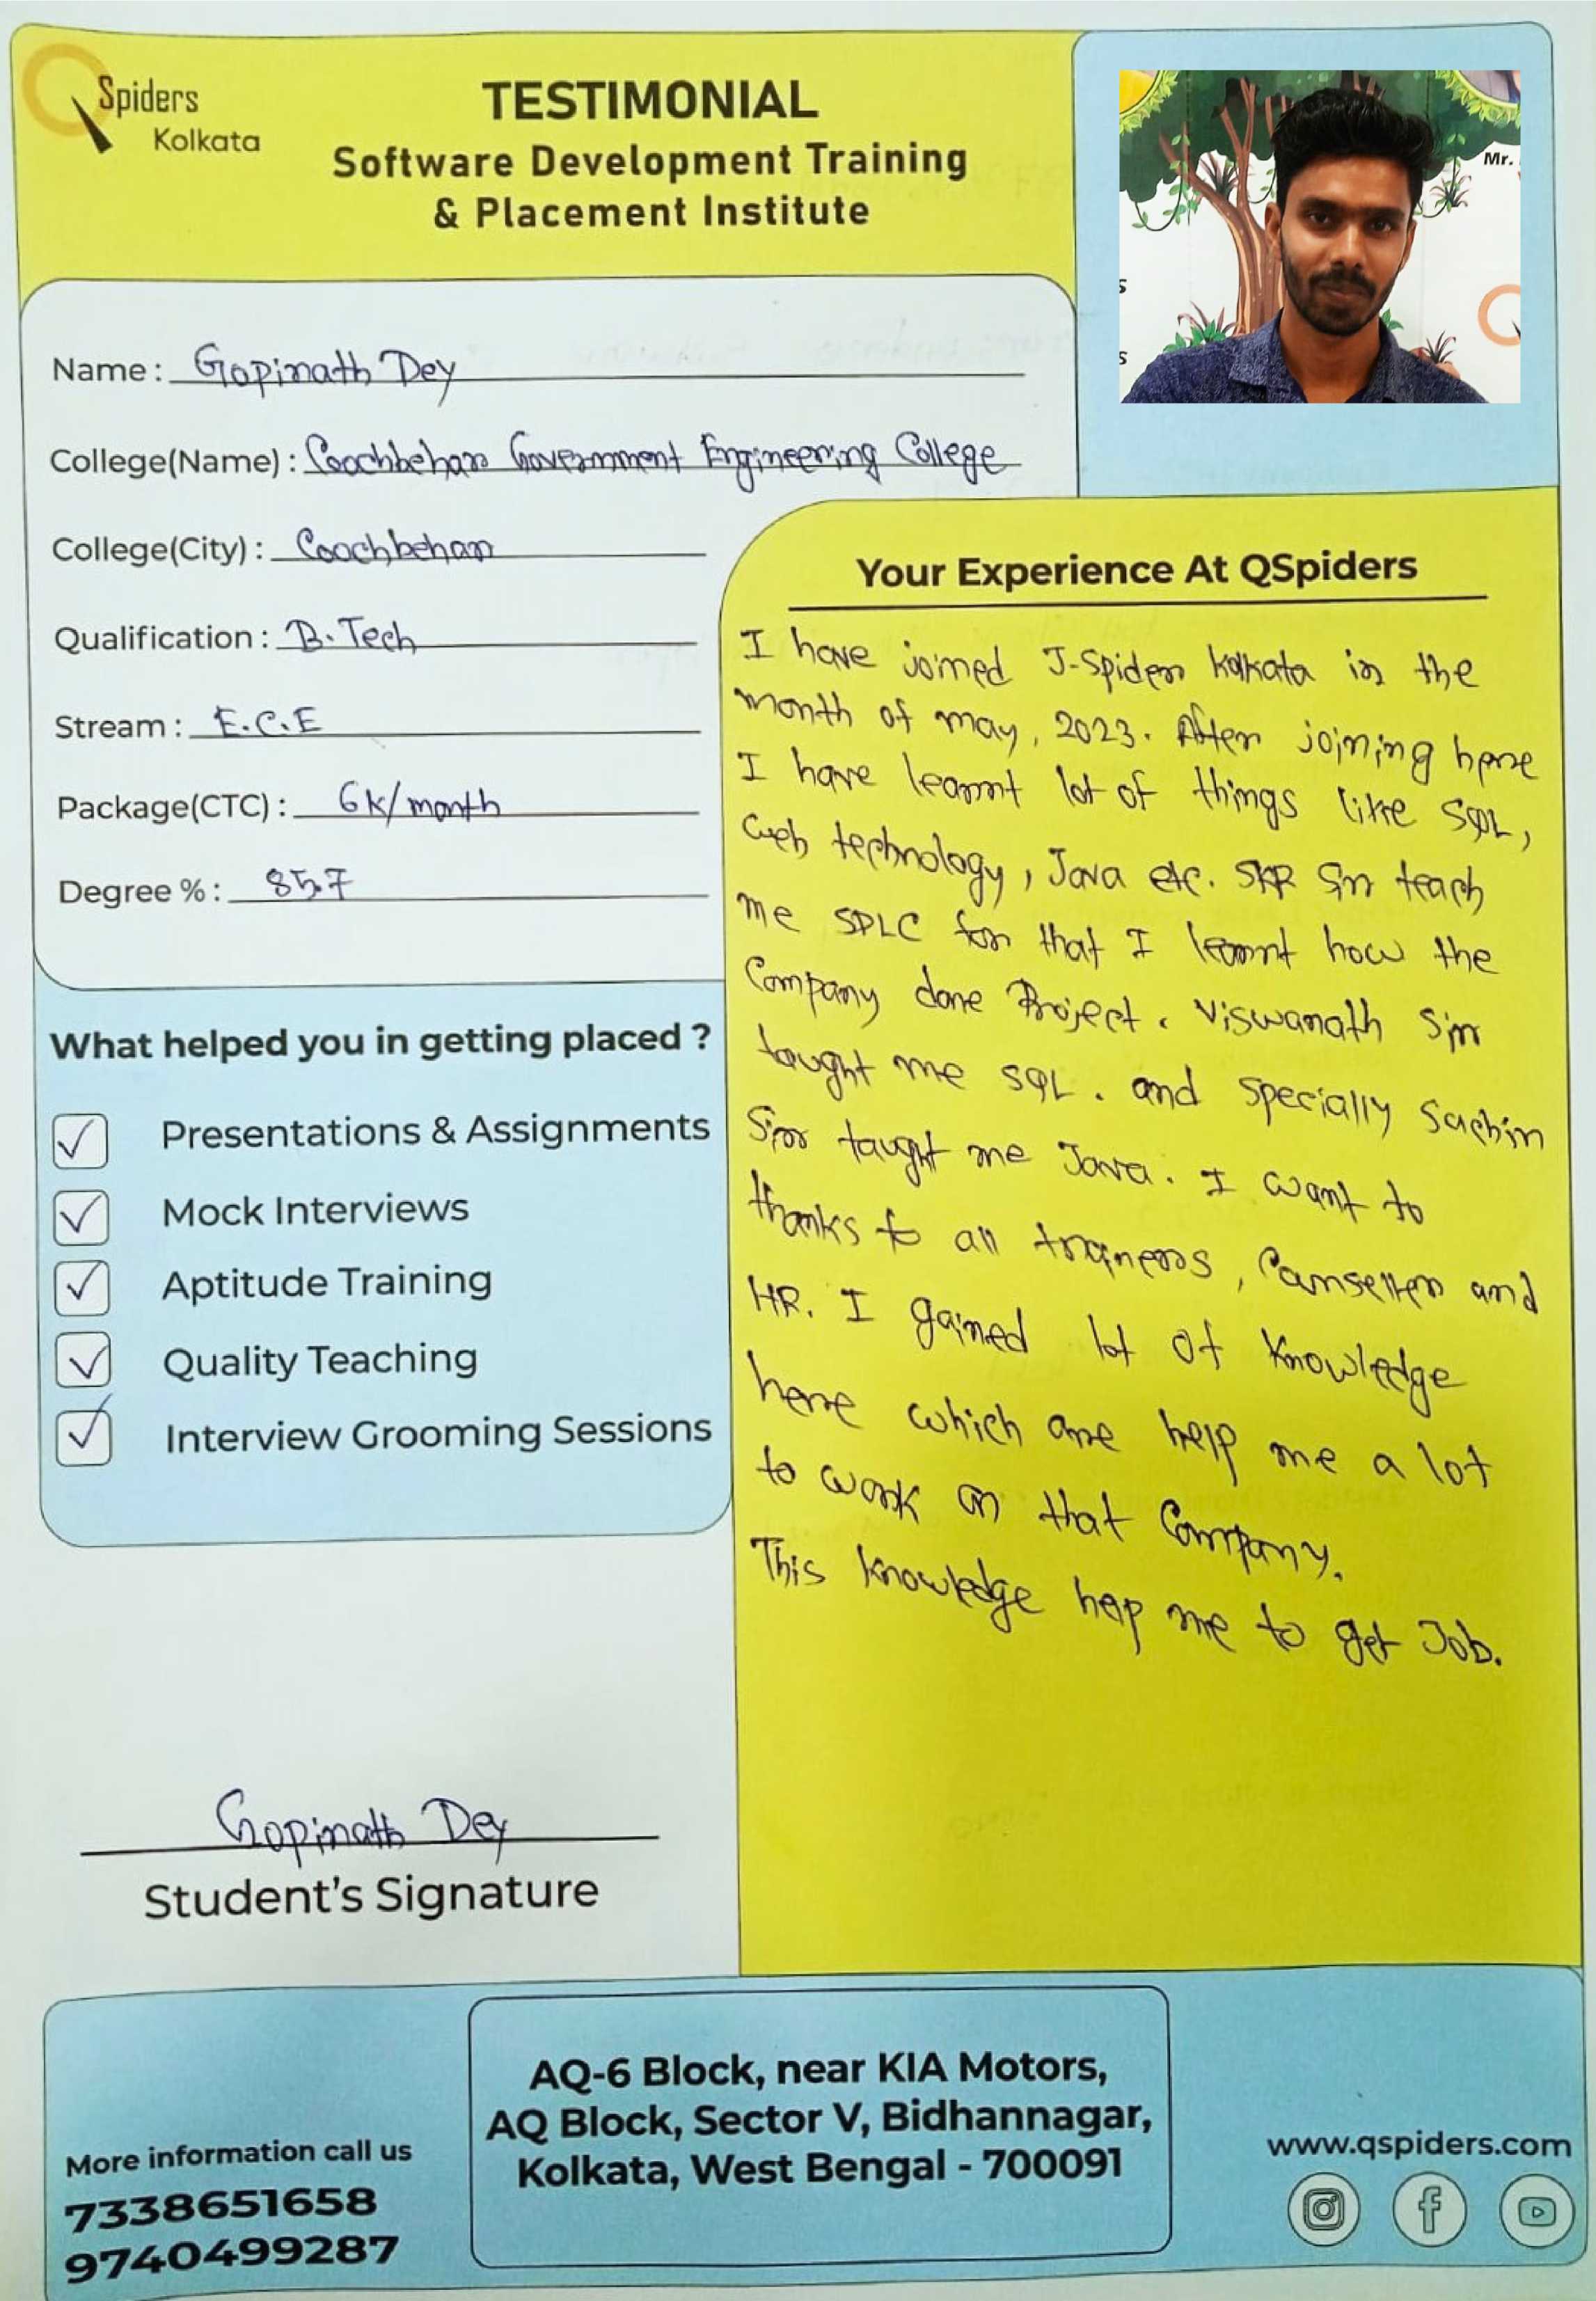 QSpiders
Kolkata
TESTIMONIAL
Software Development Training
& Placement Institute
Mr.
Name : Gopinath Dey
College(Name) : Coochbehar Government Engineering College
College(City) : Coochbehar
Qualification : B.Tech
Stream : E.C.E
Package(CTC) : 6k/month
Degree % : 85.7
What helped you in getting placed ?
Presentations & Assignments
Mock Interviews
Aptitude Training
Quality Teaching
Interview Grooming Sessions
Gopinath Dey
Student's Signature
Your Experience At QSpiders
I have joined J-Spider Kolkata in the
month of may, 2023. After joining here
I have learnt lot of things like SQL,
Web technology, Java etc. SKR Sir teach
me SDLC for that I learnt how the
Company done Project. Viswanath Sir
taught me SQL. and specially Sachin
Sir taught me Java. I want to
thanks to all trainers, Counseller and
HR. I gained lot of Knowledge
here which are help me a lot
to work on that Company.
This knowledge help me to get Job.
More information call us
7338651658
9740499287
AQ-6 Block, near KIA Motors,
AQ Block, Sector V, Bidhannagar,
Kolkata, West Bengal - 700091
www.qspiders.com